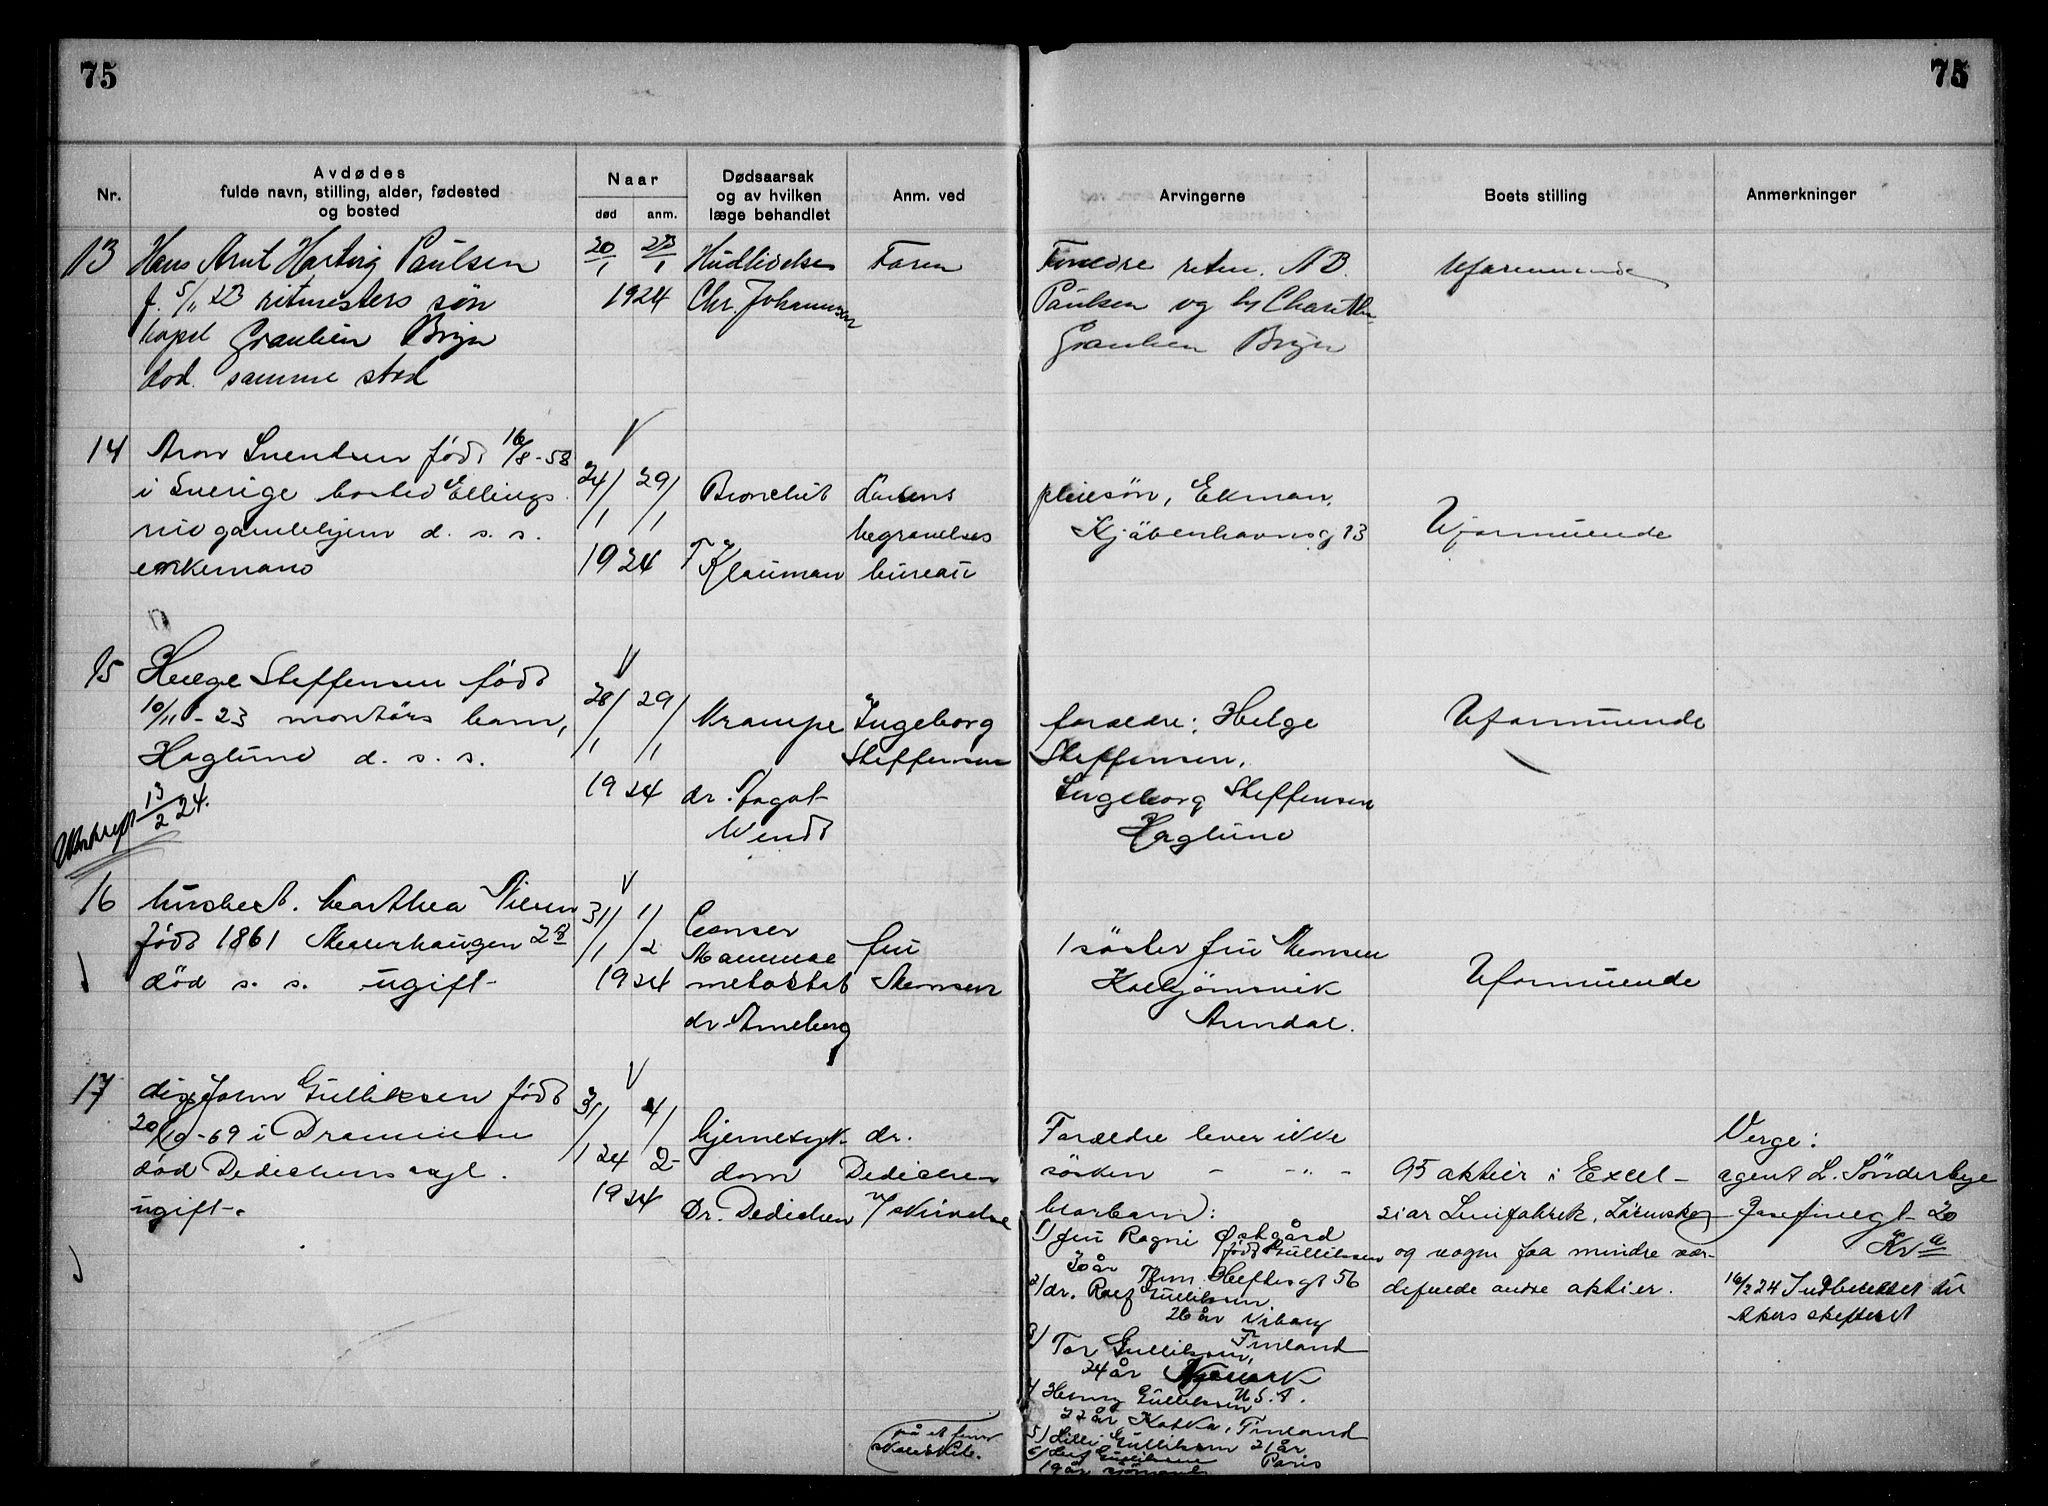 75
75
Nr.
Avdødes
fulde navn, stilling, alder, fødested
og bosted
Naar
død
anm.
Dødsaarsak
og av hvilken
læge behandlet
Anm. ved
Arvingerne
Boets stilling
Anmerkninger
13
Hans Arnt Hartvig Paulsen
f. 5/11 23 ritmesters søn
Bryn
død. samme sted
20/1
23/1
1924
Hudlidelse
Chr. Johannsen
Faren
Forældre ritm. A B.
Paulsen og
Bryn
Uformuende
14
Aron Svendsen født 16/8-58
i Sverige bosted Ellings
rud gamlehjem d. s. s.
enkemand
24/1
29/1
1924
Bronchit
Klauman
begravelses
bureau
pleiesøn, Ekman,
Kjøbenhavnsg 13
Uformuende
15
Helge Steffensen født
10/11-23 montørs barn,
Haglund d. s. s.
13/2 24.
28/1
29/1
1924
Krampe
dr. Aagot
Wendt
Ingeborg
Steffensen
foraldre: Helge
Steffensen,
Ingeborg Steffensen
Haglund
Uformuende
16
husbest. Marthea
født 1861
død s. s. ugift-
31/1
1/2
1924
Canser
Mammae
metastat
dr Arneberg
fru
1 søster fru
Arendal.
Uformuende
17
disp John Gulliksen født
20/10-69 i Drammen
død Dedichens asyl.
ugift-.
31/1 24
4/2-
1924
hjernesyk-
dom
Dr. Dedichen
dr.
Dedichen
Forældre lever ikke
søsken - -"- -
1) fru Ragni Østgård
født Gulliksen
30 år Thm. Heftiesgt 56
2/ dr. Rolf Gulliksen
26 år Viborg
Finland
3) Tor Gulliksen,
24 år Newark
U.S.A.
4 Henry Gulliksen
22 år Kotka, Finland
5) Lilli Gulliksen 21 år
Paris
6) Leif Gulliksen
19 år
95 aktier i Excel-
siar Limfabrik, Lörenskog
og nogen faa mindre vær-
defulde andre aktier.
Verge:
agent L. Sønderbye
Josefinegt 20
Kra
16/2 24 Indberettet til
Akers skifteret